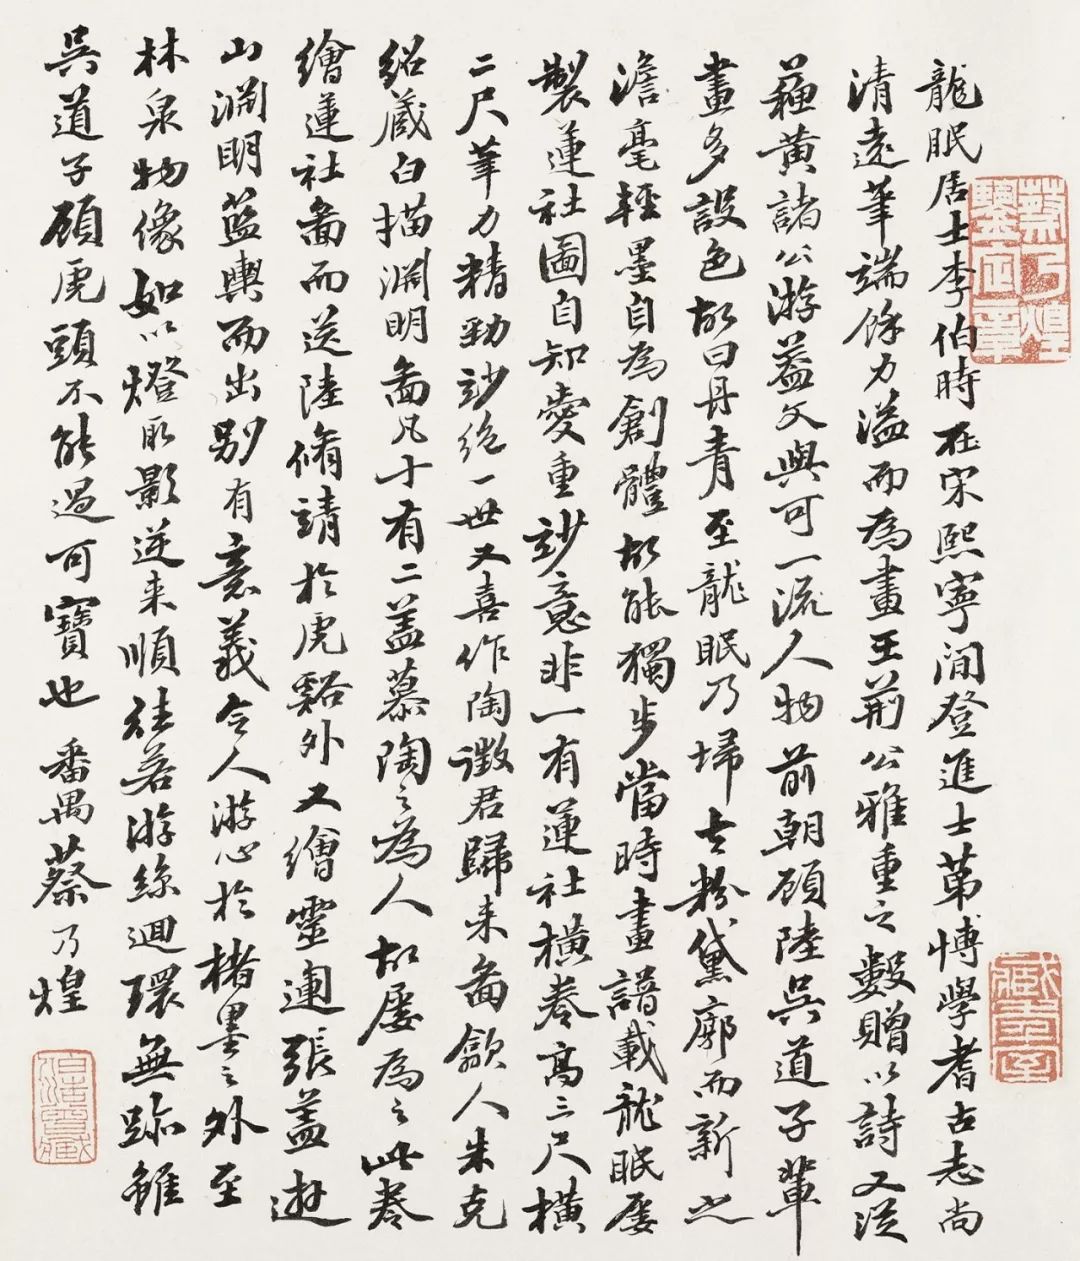 龍眠居士李伯時在宋熙寧間登進士第博學耆古志尚
清遠筆端餘力溢而為畫王荊公雅重之數贈以詩又從
蘓黃諸公游蓋文與可一流人物前朝顧陸吳道子輩
畫多設色故曰丹青至龍眠乃埽去粉黛廓而新之
澹毫輕墨自為創體故能獨步當時畫譜載龍眠屢
製蓮社圖自知愛重妙意非一有蓮社橫卷高二尺橫
二尺筆力精勁妙絕一世又喜作陶徵君歸来啚歙人朱克
紹蔵白描淵明啚凡十有二蓋慕陶之為人故屢為之此卷
繪蓮社啚而送陸脩靖於虎谿外又繪靈運張蓋遊
山淵明藍輿而出別有意義令人游心於楮墨之外至
林泉物像如以燈取影逆来順往若游絲迴環無跡雖
吳道子顧虎頭不能過可寶也 番禺蔡乃煌
蔡乃煌
鑒定章